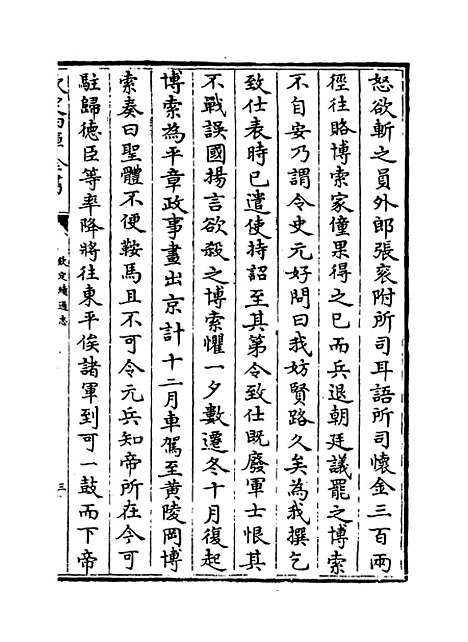 怒欲斬之員外郎張衮附所司耳語所司懷金三百兩
徑往賂博索家僮果得之已而兵退朝廷議罷之博索
不自安乃謂令史元好問曰我妨賢路久矣為我撰乞
致仕表時已遣使持詔至其第令致仕既廢軍士恨其
不戰誤國揚言欲殺之博索懼一夕數遷冬十月復起
博索為平章政事畫出京計十二月車駕至黄陵岡博
索奏曰聖體不便鞍馬且不可令元兵知帝所在今可
駐歸徳臣等率降將往東平俟諸軍到可一鼓而下帝
欽定四庫全書
欽定續通志
三